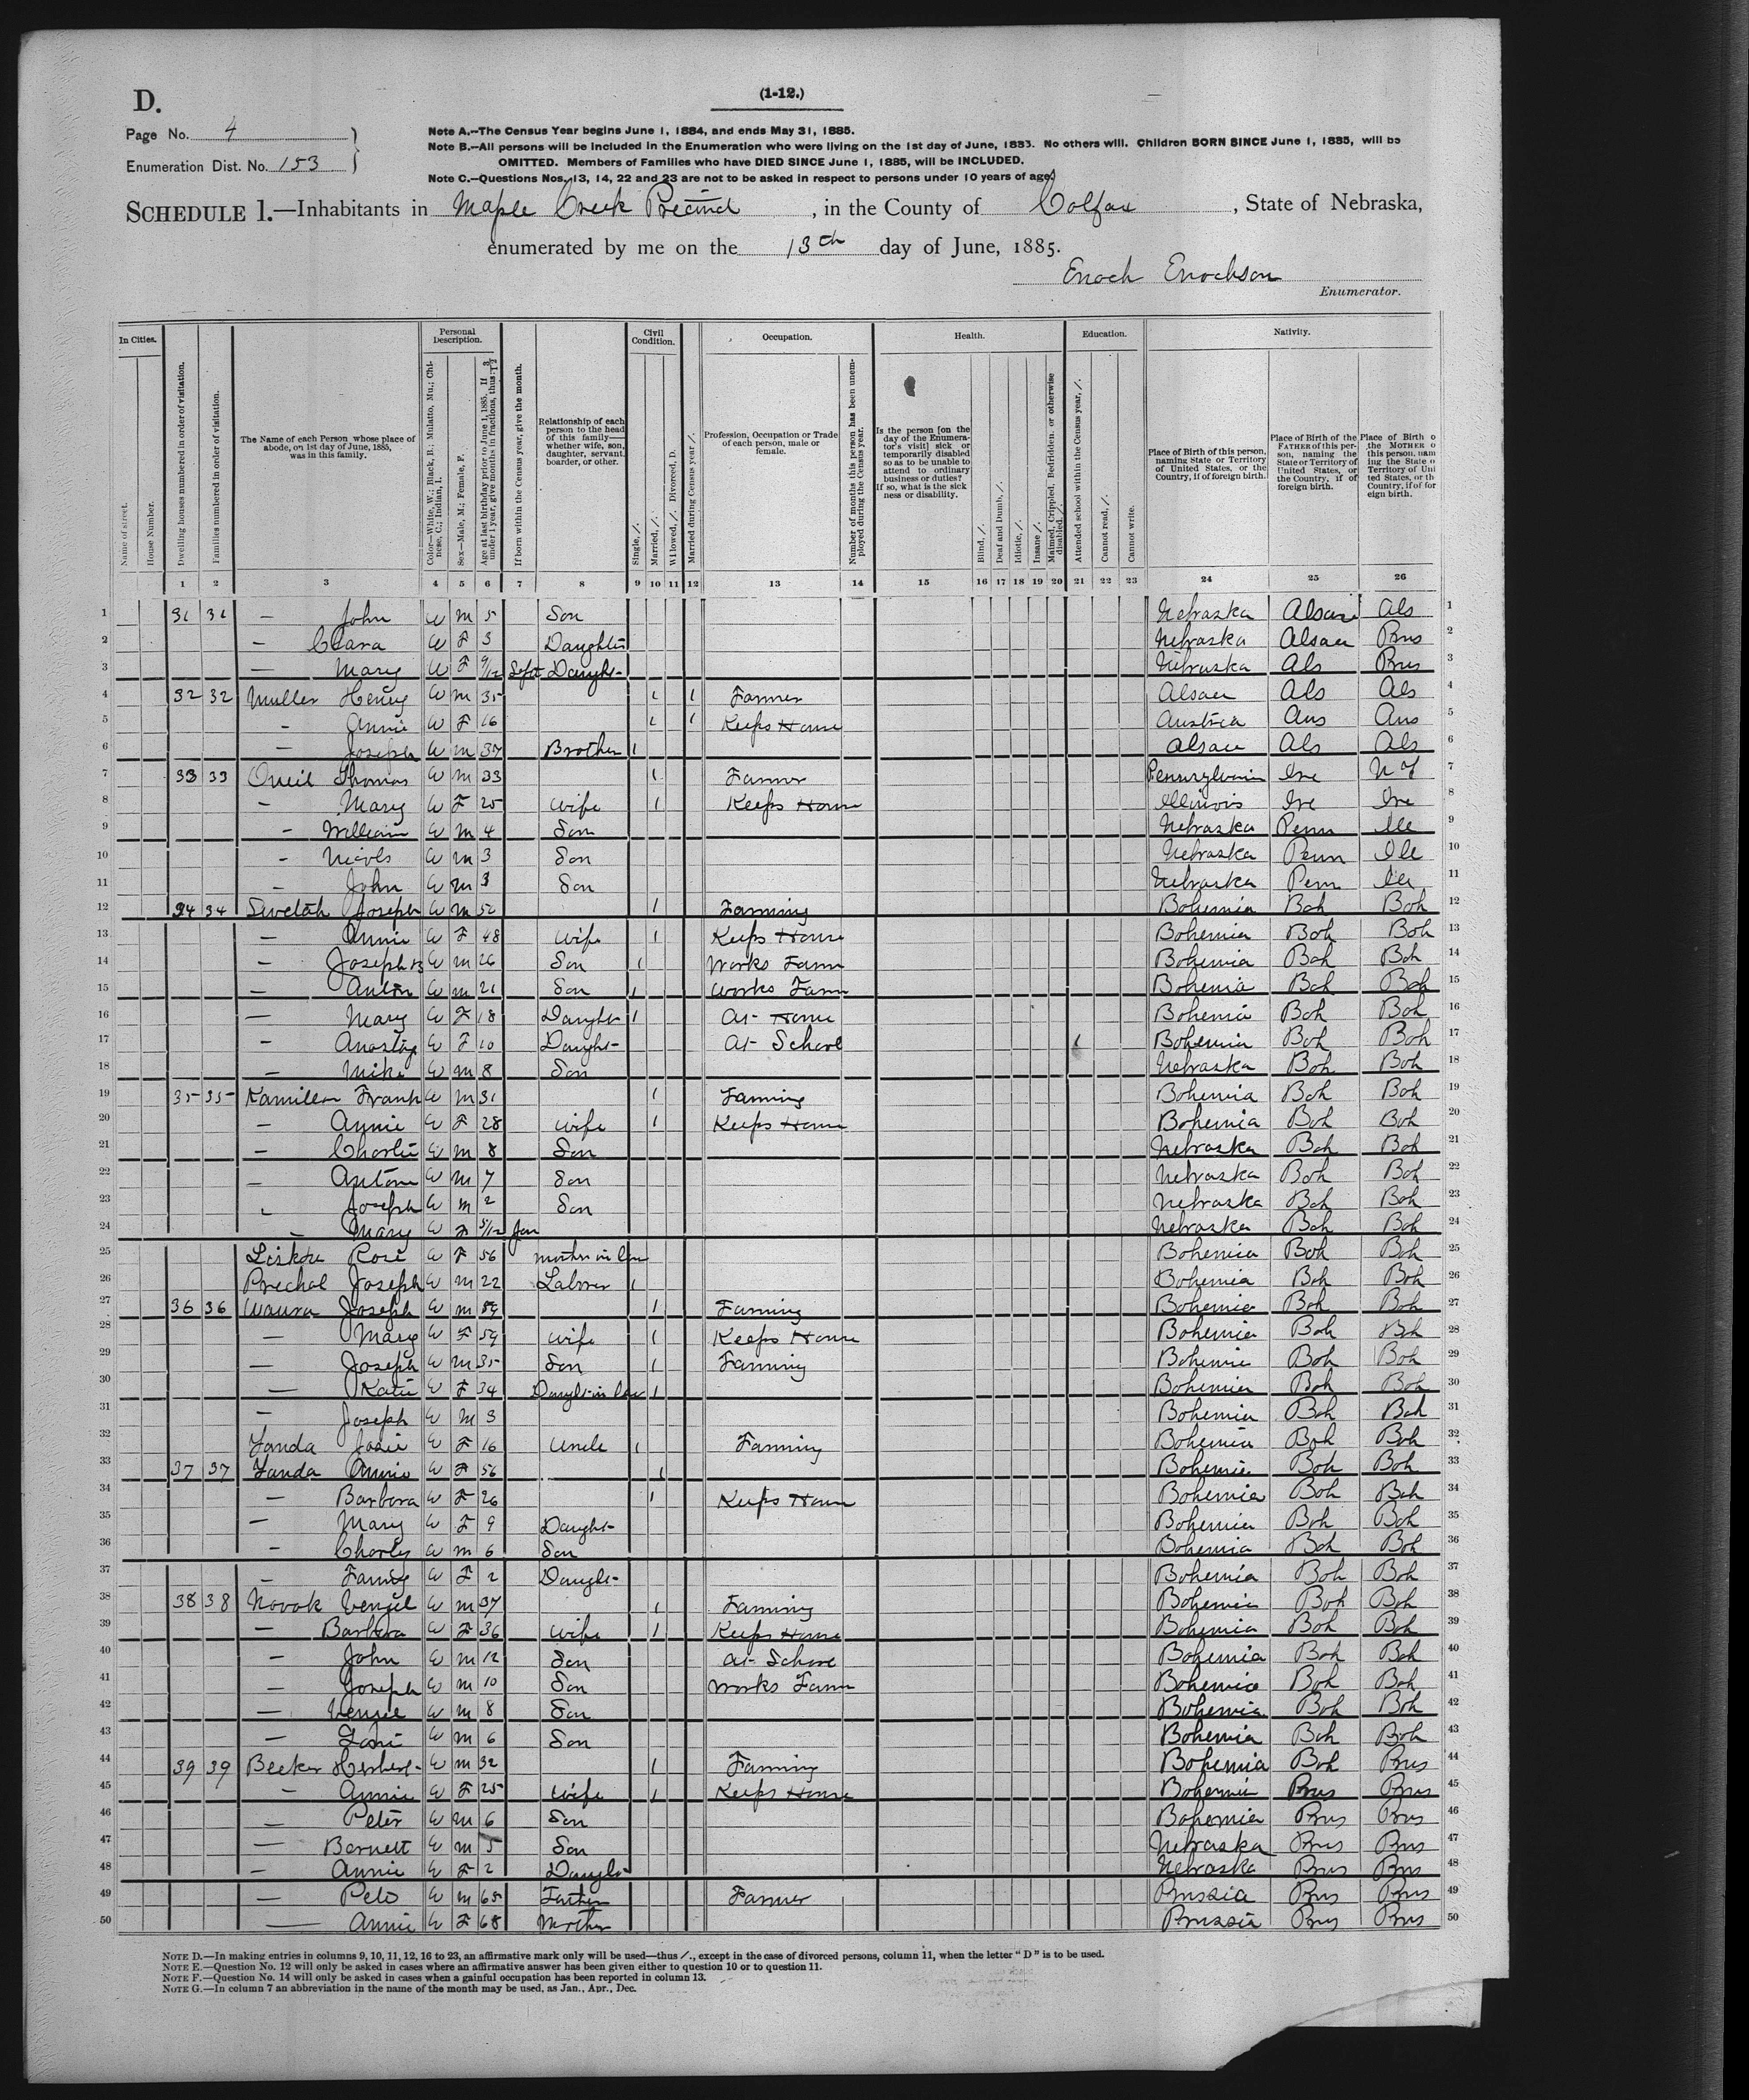 D.
(1-12.)
Page No. 4
Enumeration Dist. No. 153
Note A.--The Census Year begins June 1, 1884, and ends May 31, 1885.
Note B.--All persons will be included in the Enumeration who were living on the 1st day of June, 1885. No others will. Children BORN SINCE June 1, 1885, will be
OMITTED. Members of Families who have DIED SINCE June 1, 1885, will be INCLUDED.
Note C.--Questions Nos. 13, 14, 22 and 23 are not to be asked in respect to persons under 10 years of age.
SCHEDULE 1.—Inhabitants in Maple Creek Precinct, in the County of Colfax, State of Nebraska,
enumerated by me on the 13th day of June, 1885.
Enoch Enochson
Enumerator.
In Cities. Personal Description. Civil Condition. Occupation. Health. Education. Nativity.
Name of street.
House Number.
Dwelling houses numbered in order of visitation.
Families numbered in order of visitation.
The Name of each Person whose place of abode, on 1st day of June, 1885, was in this family.
Color—White, W.; Black, B.; Mulatto, Mu.; Chinese, C.; Indian, I.
Sex—Male, M.; Female, F.
Age at last birthday prior to June 1, 1885. If under 1 year, give months in fractions, thus: 3/12
If born within the Census year, give the month.
Relationship of each person to the head of this family—whether wife, son, daughter, servant, boarder, or other.
Single, /.
Married, /.
Widowed, /. Divorced, D.
Married during Census year /.
Profession, Occupation or Trade of each person, male or female.
Number of months this person has been unemployed during the Census year.
Is the person [on the day of the Enumerator's visit] sick or temporarily disabled so as to be unable to attend to ordinary business or duties? If so, what is the sickness or disability.
Blind, /.
Deaf and Dumb, /.
Idiotic, /.
Insane /.
Maimed, Crippled, Bedridden, or otherwise disabled, /.
Attended school within the Census year, /.
Cannot read, /.
Cannot write.
Place of Birth of this person, naming State or Territory of United States, or the Country, if of foreign birth.
Place of Birth of the FATHER of this person, naming the State or Territory of United States, or the Country, if of foreign birth.
Place of Birth o the MOTHER o this person, nam ing the State o Territory of Uni ted States, or th Country, if of for eign birth.
1 2 3 4 5 6 7 8 9 10 11 12 13 14 15 16 17 18 19 20 21 22 23 24 25 26
1 31 31 — John W M 5 Son Nebraska Alsac Als 1
2 — Clara W F 3 Daughter Nebraska Alsac Prus 2
3 — Mary W F 9/12 Sept Daught- Nebraska Als Prus 3
4 32 32 Muller Henry W M 35 1 1 Farmer Alsac Als Als 4
5 — Annie W F 16 1 1 Keeps House Austria Aus Aus 5
6 — Joseph W M 37 Brother 1 Alsac Als Als 6
7 33 33 Oneil Thomas W M 33 1 Farmer Pennsylvania Ire N Y 7
8 — Mary W F 25 Wife 1 Keeps House Illinois Ire Ire 8
9 — William W M 4 Son Nebraska Penn Ill 9
10 — W M 3 Son Nebraska Penn Ill 10
11 — John W M 3 Son Nebraska Penn Ill 11
12 34 34 Joseph W M 52 1 Farming Bohemia Boh Boh 12
13 — Annie W F 48 Wife 1 Keeps House Bohemia Boh Boh 13
14 — Joseph W M 26 Son 1 Works Farm Bohemia Boh Boh 14
15 — Anton W M 21 Son 1 Works Farm Bohemia Boh Boh 15
16 — Mary W F 18 Daught 1 At Home Bohemia Boh Boh 16
17 — W F 10 Daught- At School 1 Bohemia Boh Boh 17
18 — Mike W M 8 Son Nebraska Boh Boh 18
19 35 35 Frank W M 31 1 Farming Bohemia Boh Boh 19
20 — Annie W F 28 Wife 1 Keeps House Bohemia Boh Boh 20
21 — Charlie W M 8 Son Nebraska Boh Boh 21
22 — Antone W M 7 Son Nebraska Boh Boh 22
23 — Joseph W M 2 Son Nebraska Boh Boh 23
24 — Mary W F 5/12 Jan Nebraska Boh Boh 24
25 Rosi W F 56 mother in law Bohemia Boh Boh 25
26 Prechal Joseph W M 22 Laborer 1 Bohemia Boh Boh 26
27 36 36 Waura Joseph W M 59 1 Farming Bohemia Boh Boh 27
28 — Mary W F 59 Wife 1 Keeps House Bohemia Boh Boh 28
29 — Joseph W M 35 Son 1 Farming Bohemia Boh Boh 29
30 — Katie W F 34 Daught-in law 1 Bohemia Boh Boh 30
31 — Joseph W M 3 Bohemia Boh Boh 31
32 Yanda W F 16 Uncle 1 Farming Bohemia Boh Boh 32
33 37 37 Yanda Annie W F 56 1 Bohemia Boh Boh 33
34 — Barbora W F 26 1 Keeps House Bohemia Boh Boh 34
35 — Mary W F 9 Daught- Bohemia Boh Boh 35
36 — Charly W M 6 Son Bohemia Boh Boh 36
37 — Fanny W F 2 Daught- Bohemia Boh Boh 37
38 38 38 Novak Venzel W M 37 1 Farming Bohemia Boh Boh 38
39 — Barbara W F 36 Wife 1 Keeps House Bohemia Boh Boh 39
40 — John W M 12 Son At School Bohemia Boh Boh 40
41 — Joseph W M 10 Son Works Farm Bohemia Boh Boh 41
42 — W M 8 Son Bohemia Boh Boh 42
43 — W M 6 Son Bohemia Boh Boh 43
44 39 39 Becker Herbert W M 32 1 Farming Bohemia Boh Prus 44
45 — Annie W F 25 Wife 1 Keeps House Bohemia Prus Prus 45
46 — Peter W M 6 Son Bohemia Prus Prus 46
47 — Bernett W M 5 Son Nebraska Prus Prus 47
48 — Annie W F 2 Daught Nebraska Prus Prus 48
49 — W M 65 Father Farmer Prussia Prus Prus 49
50 — Annie W F 68 Mother Prussia Prus Prus 50
NOTE D.—In making entries in columns 9, 10, 11, 12, 16 to 23, an affirmative mark only will be used—thus /., except in the case of divorced persons, column 11, when the letter "D" is to be used.
NOTE E.—Question No. 12 will only be asked in cases where an affirmative answer has been given either to question 10 or to question 11.
NOTE F.—Question No. 14 will only be asked in cases when a gainful occupation has been reported in column 13.
NOTE G.—In column 7 an abbreviation in the name of the month may be used, as Jan., Apr., Dec.